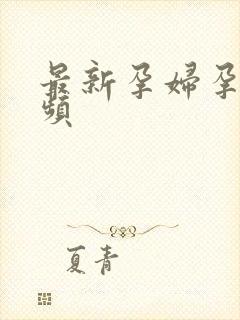 最新孕婦孕
頻
夏青